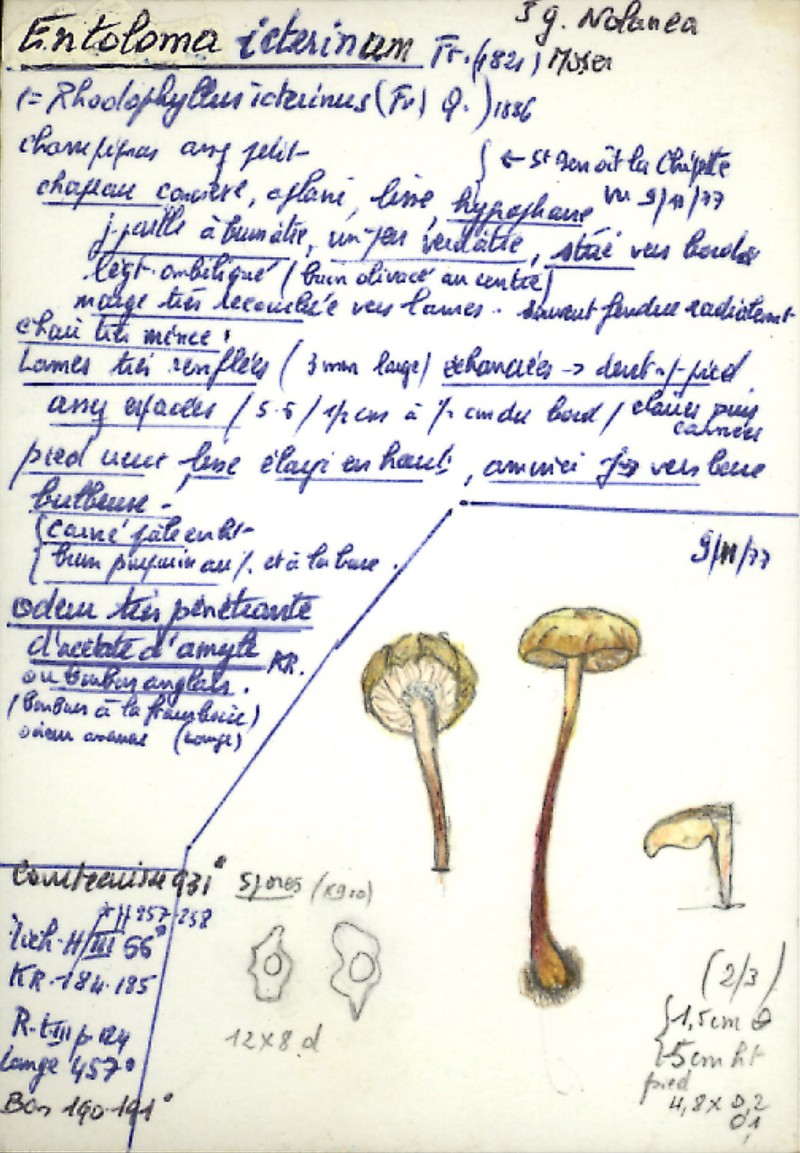 S g. Nolanea
Entoloma icterinum Fr. (1821) Moser
(= Rhodophyllus icterinus (Fr) Q. ) 1886
champignon assez petit
← St Benoît la Chipotte
vu 9/11/77
chapeau convexe, aplani, lisse, hygrophane
j. paille à brunâtre, un peu verdâtre, strié vers bords
légt. ombiliqué (brun olivacé au centre)
marge très recourbée vers lames. souvent fendue radialement
chair très mince!
Lames très renflées (3 mm large) échancrées -> dent s/ pied
assez espacées / 5-6 / 1/2 cm à 1/2 cm du bord / claires puis
carnées
pied creux lisse élargi en haut, aminci vers base
bulbeuse.
carné pâle en ht
brun purpurin au 1/2 et à la base.
Odeur très pénétrante
d'acétate d'amyle KR.
ou bonbon anglais.
(bonbon à la framboise)
odeur ananas (Lange)
9/11/77
Courtecuisse 931°
p. 257-258
Rich. H/III 56°
KR. 184-185
R. t III p 124
Lange 457°
Bon 190-191°
Spores (x900)
12 x 8 d
(2/3)
1,5 cm Ø
5 cm ht
pied
4,8 x 0,2
0,1